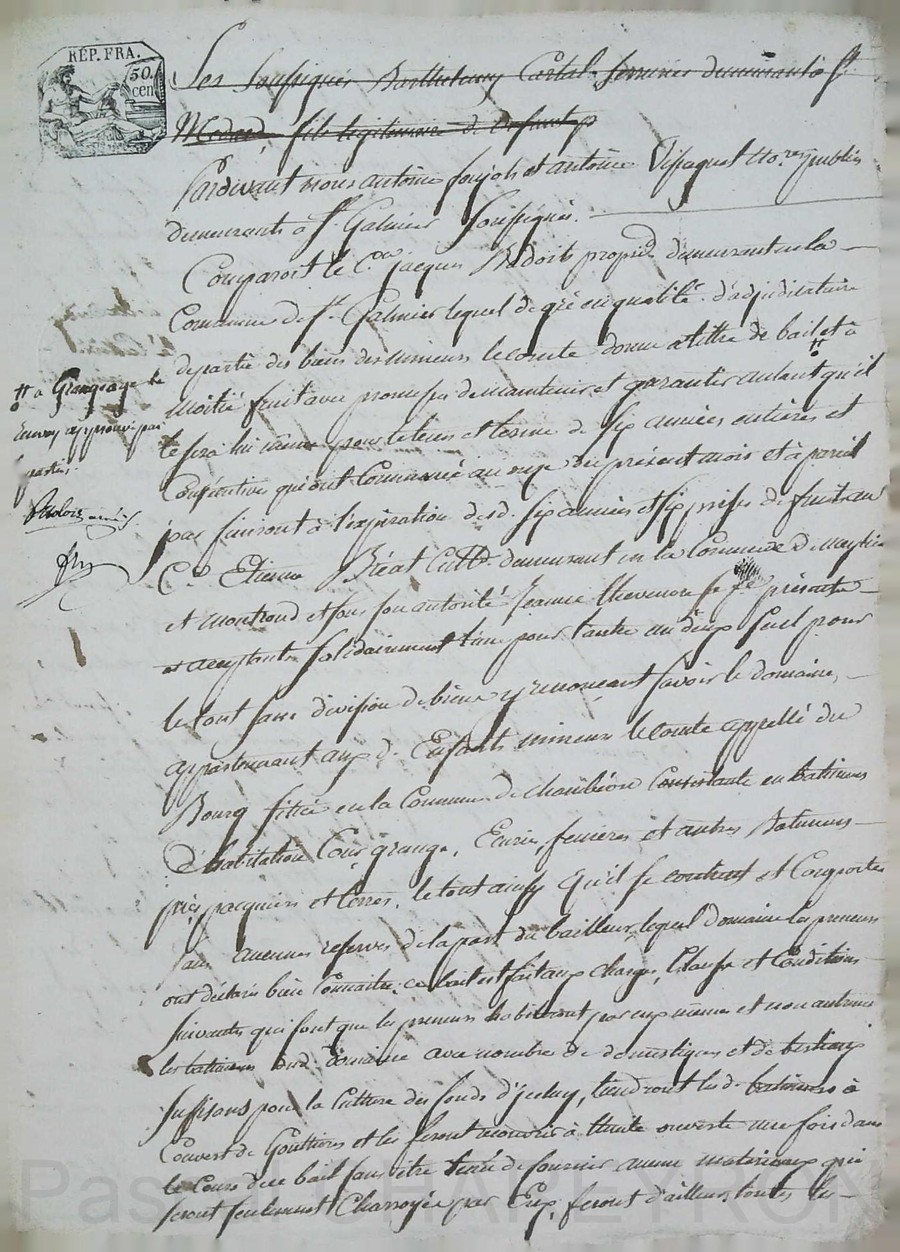 RÉP. FRA.
50
cen
Les soussignés Barthelemy Cartal serrurier demeurant à St
Medard, fils legitimaire de defunt
Pardevant nous antoine foujols et antoine notres publics
demeurants à St Galmier soussignés.
Comparoit le Cen jacques Badoit propre demeurant en la
Commune de St Galmier lequel de gré en qualité d'adjudicataire
de partie des biens des mineurs lecomte donne a titre de bail et à
moitié fruit avec promesse de maintenir et garantir autant qu'il
le sera lui même pour le tems et terme de six années entières et
Consécutives qui ont Commencé au onze du présent mois et à pareil
jour finiront à l'expiration des d. six années et six prises de fruits au
Cen Etienne Réat Cultr demeurant en la Commune de
et Montrond et sous son autorité Jeanne Thevenon sa fe présents
et acceptants solidairement l'un pour l'autre un deux seul pour
le tout sans division de biens y renonceant savoir le domaine,
appartenant aux d. Enfants mineurs lecomte appellé du
Bourg sittué en la Commune de Chambéon Consistante en batiments
D'habitation Cour grange, Ecurie fenières et autres Batimens
prés pacquiers et terres, le tout ainsy qu'il se contient et Comporte
sans aucunes reserves de la part du bailleur, lequel domaine les preneurs
ont déclaré bien Connaitre, ce bail est fait aux charges, Clauses et Conditions
suivantes qui sont que les preneurs habiteront par eux mêmes et non autrement
les batimens dud. domaine avec nombre de domestiques et de bestiaux
suffisans pour la Culture des fonds d'iceluy, tiendront les d. batimens à
Couvert de Gouttières et les feront recouvrir à thuile ouverte une fois dans
le Cours de ce bail sans être tenus de fournir aucuns matériaux qui
seront seulement Charroyés par Eux, feront d'ailleurs toutes les
# a Grangeage le
renvoy approuvé par
parties.
Pascal CHAPEYRON